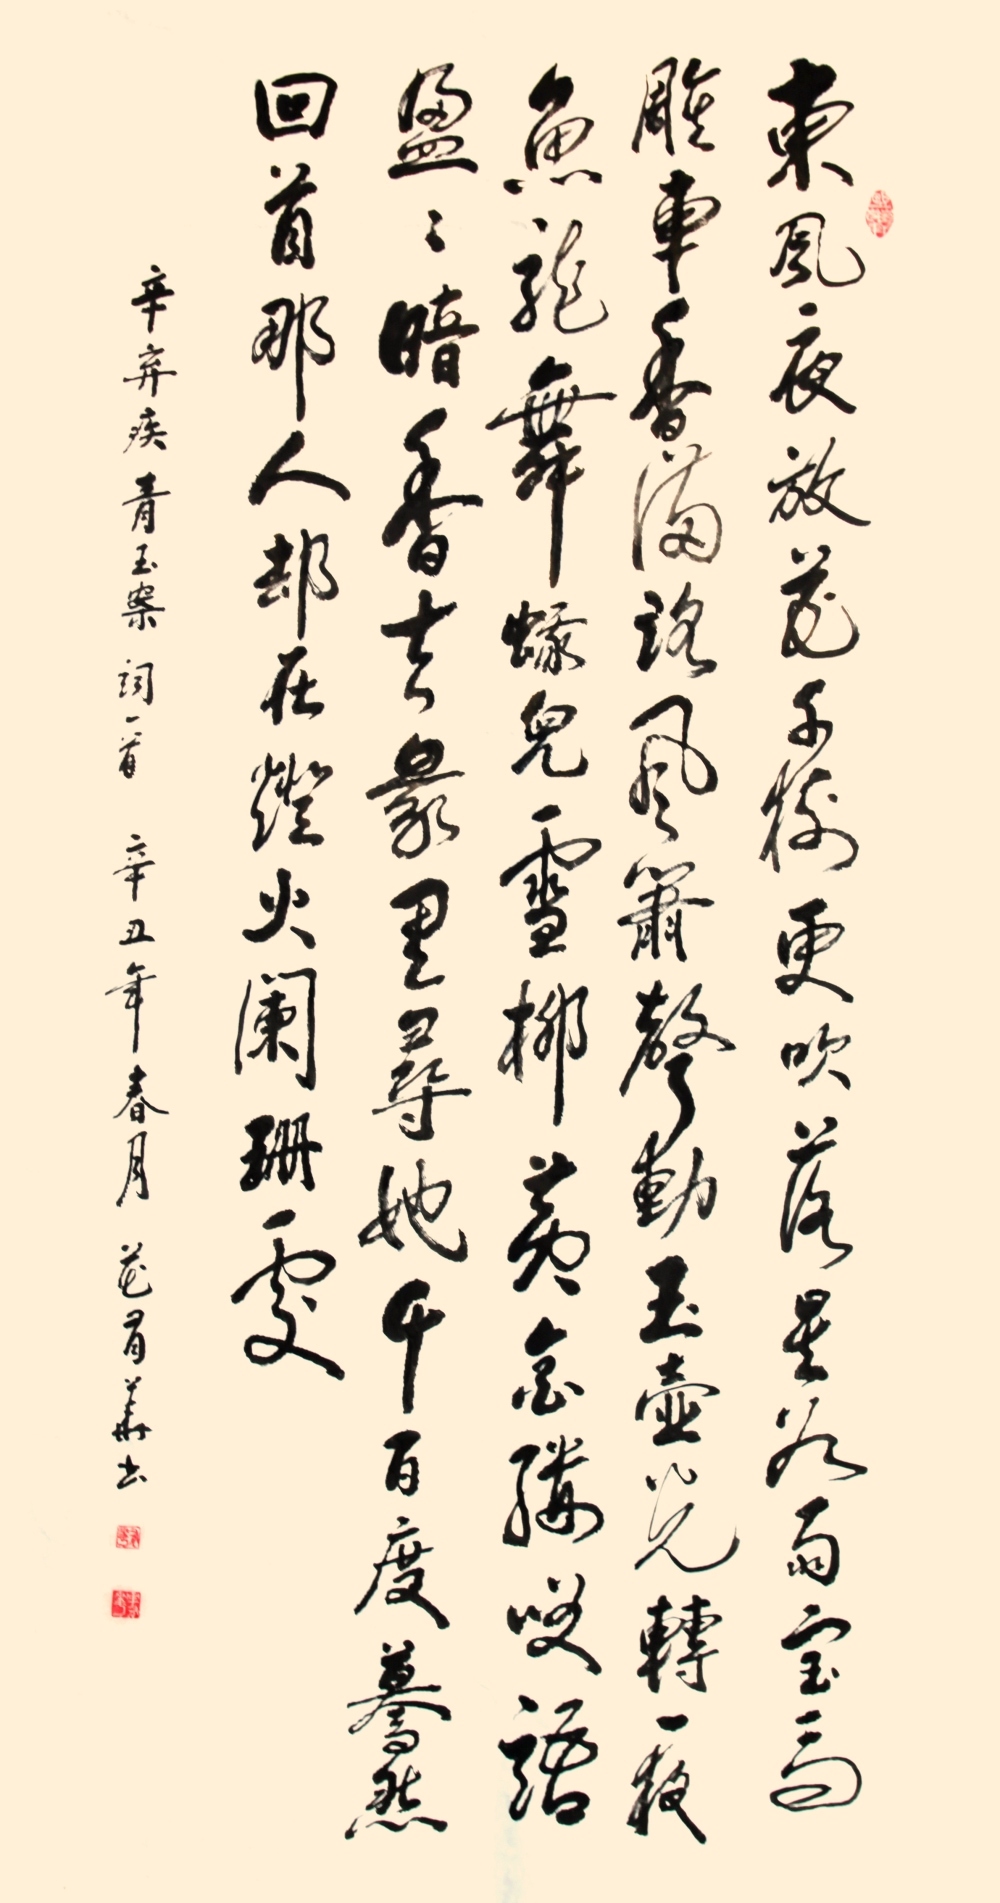 東風夜放花千樹更吹落星如雨宝馬
雕車香滿路凤簫聲動玉壺光轉一夜
魚龍舞蛾兒雪柳黃金縷笑語
盈々暗香去眾里尋她千百度驀然
回首那人却在燈火阑珊處
辛弃疾青玉案詞一首 辛丑年春月 華书